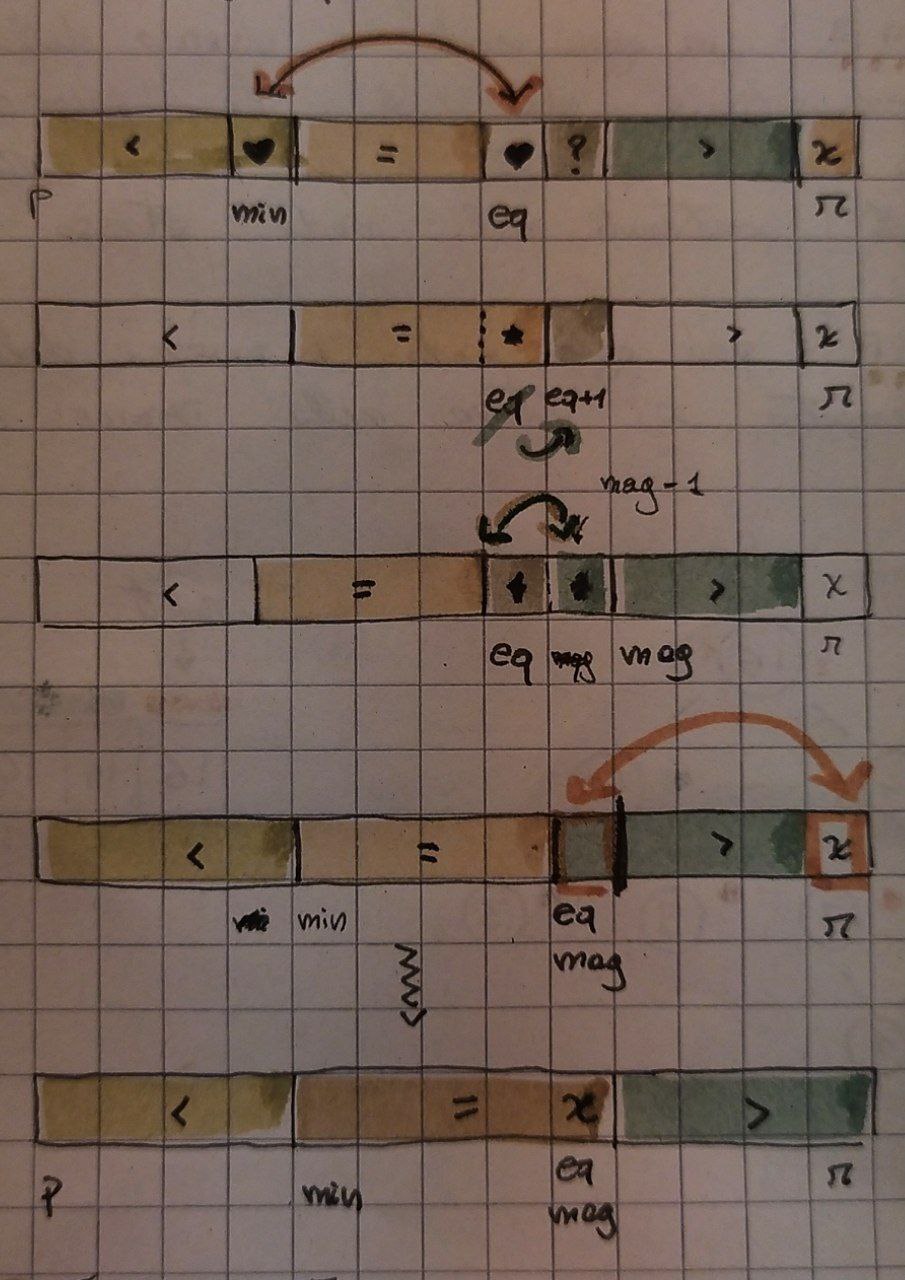 < ♥ = ♥ ? > x
p min eq r
< = * > x
eq eq+1 r
mag-1
< = > x
eq mag mag r
< = > x
min eq r
mag
< = x >
p min eq r
mag